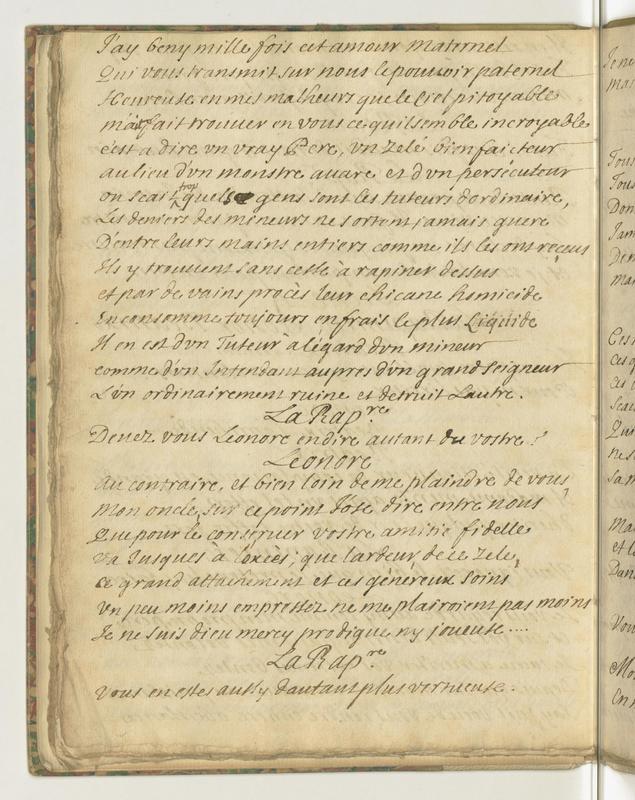 J'ay beny mille fois cet amour maternel
Qui vous transmit sur nous le pouvoir paternel
Heureuse en mes malheurs que le Ciel pitoyable
m'ait fait trouver en vous ce quil semble incroyable
c'est a dire un vray Pere, un Zelé bienfaicteur
au lieu d'un monstre avare et d'un persécuteur
on scait trop quels gens sont les tuteurs dordinaire,
Les deniers des mineurs ne sortent jamais guere
D'entre leurs mains entiers comme ils les ont receus
Ils y trouvent sans cesse à rapiner dessus
et par de vains procès leur chicane homicide
En consomme toujours en frais le plus Liquide
Il en est d'un Tuteur à légard d'un mineur
comme d'un Intendant aupres d'un grand seigneur
L'un ordinairement ruine et detruit Lautre.
La Rap.re
Devez vous Leonore en dire autant du vostre?
Leonore
au contraire, et bien loin de me plaindre de vous,
Mon oncle, sur ce point J'ose dire entre nous
Que pour le conserver vostre amitié fidelle
va Jusques à l'excès; que lardeur de ce Zele,
ce grand attachement et ces généreux soins
un peu moins empressez ne me plairoient pas moins
Je ne suis dieu mercy prodigue ny joueuse....
La Rap.re
vous en estes aussy dautant plus vertueuse.